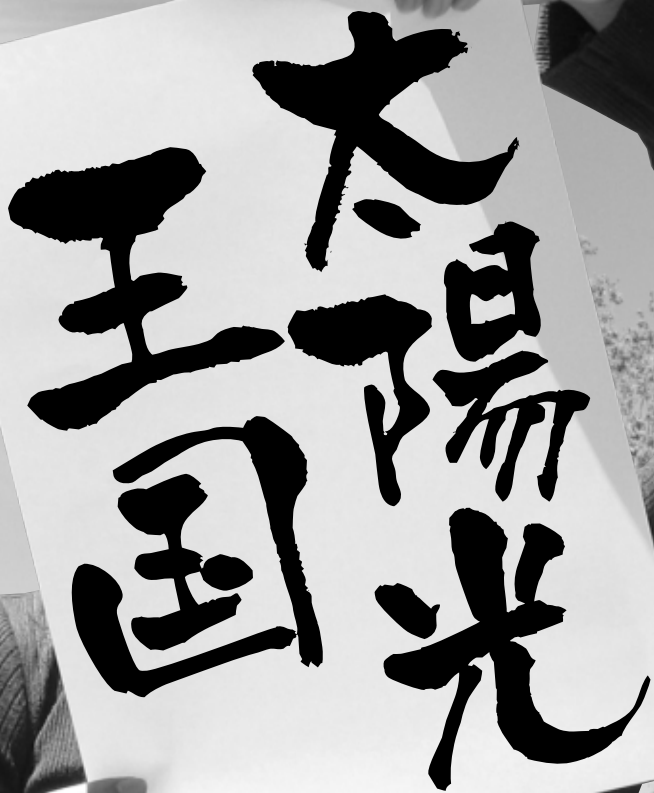 太陽光
王国